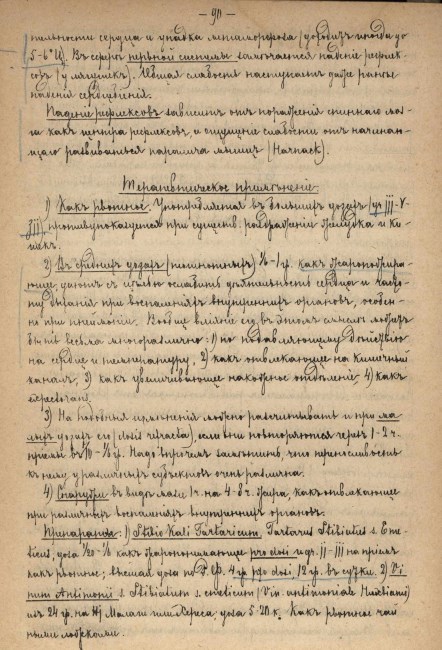 – 90 –
тельности сердца и упадка метаморфоза (доходитъ иногда до
5-6° Ц). Въ сферѣ нервной системы замѣчается паденіе рефлек-
совъ (у лягушекъ). Общая слабость наступаетъ даже раньше
паденія сердцебіенія.
Паденіе рефлексовъ зависитъ отъ пораженія спиннаго моз-
га какъ центра рефлексовъ, и ощущеніе слабости отъ начинаю-
щаго развиваться паралича мышцъ (Harnack).
Терапевтическое примѣненіе.
1) Какъ рвотное. Употребляется въ большихъ дозахъ (gr III-V-
), противупоказуется при существ. раздраженіи желудка и ки-
шекъ.
2) Въ среднихъ дозахъ (тошнотныхъ) 1/6-1 gr. какъ жаропонижаю-
щее, даютъ съ цѣлью ослабить дѣятельность сердца и часто-
ту дыханія при воспаленіяхъ внутреннихъ органовъ, особен-
но при пнеймоніи. Вообще вліяніе его въ этомъ смыслѣ можетъ
быть весьма многоразлично: 1) по подавляющему дѣйствію
на сердце и температуру, 2) какъ отвлекающее на кишечный
каналъ, 3) какъ увеличивающее накожное отдѣленіе 4) какъ
3) На подобныя примѣненія можно разсчитывать и при ма-
лыхъ дозахъ его (dosis refracta), если они повторяются черезъ 1-2 ч.
пріемы въ Надо впрочемъ замѣтить, что переносливость
къ нему у различныхъ субъектовъ очень различна.
4) Снаружи въ видѣ мази 1 ч. на 4-8 ч. жира, какъ отвлекающее
при различныхъ воспаленіяхъ внутреннихъ органовъ.
Препараты: 1) Stibio Kali Tartaricum. Tartarus Stibiatus s. Eme-
ticus, доза 1/20-1/6 какъ жаропонижающее pro dosi и gr. II-III на пріемъ
какъ рвотное; высшая доза по Р. Ф. 4 gr. pro dosi, 12 gr. въ сутки. 2) Vi-
num Antimonii s. Stibiatum s. emeticum (Vin. antimoniale Huxhami)
изъ 24 gr. на Малаги или Хереса, доза 5-20 к. Какъ рвотное чай
ными ложками.